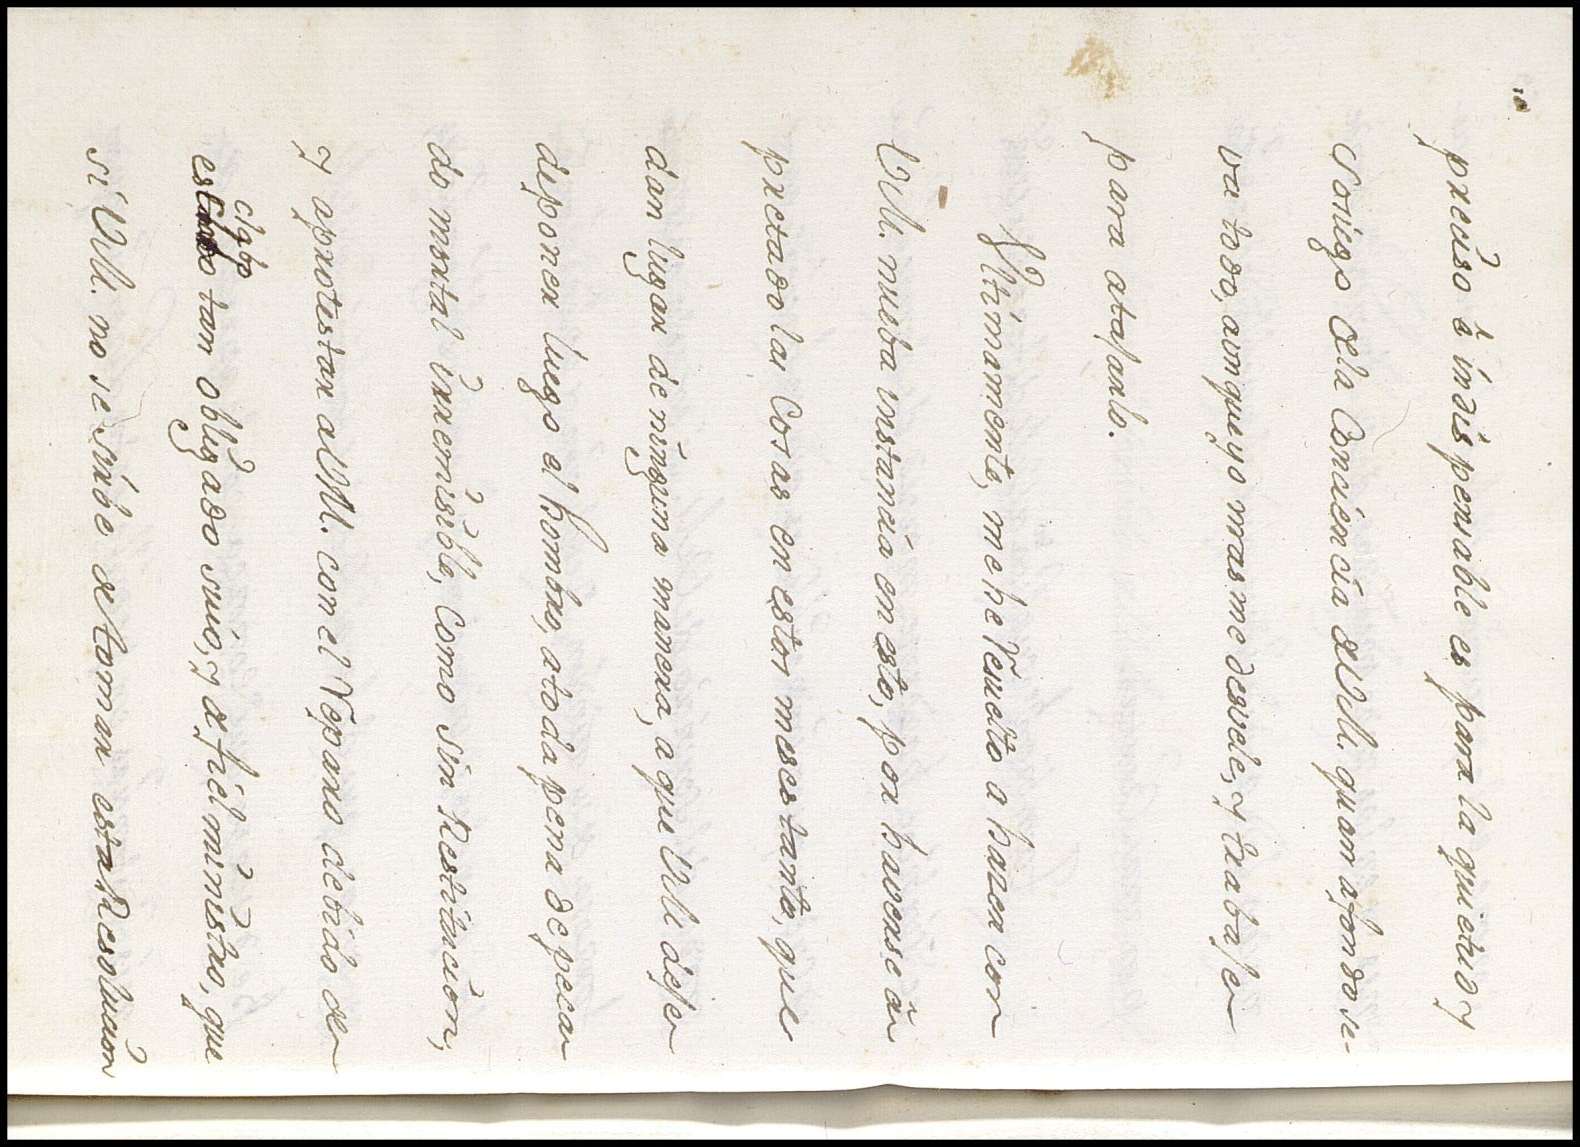 preciso è indispensable es para la quietud y
sosiego de la Conciencia de VM. quan a fondo se-
va todo, aunque yo mas me desvele, y trabaje
para atajarlo.
Ultimamente, me he Resuelto a hazer con
VM. nueba instancia en esto, por haverse à
pretado las Cosas en estos meses tanto, que
dan lugar de ninguna manera, a que VM deje
deponer luego el hombro, atoda pena de peca
do mortal irremisible, Como sin Restitucion,
y aprotestar a VM. con el Reparo debido de
tan obligado suio, y de fiel ministro, que
si VM. no se sirbe de tomar esta Resolucion